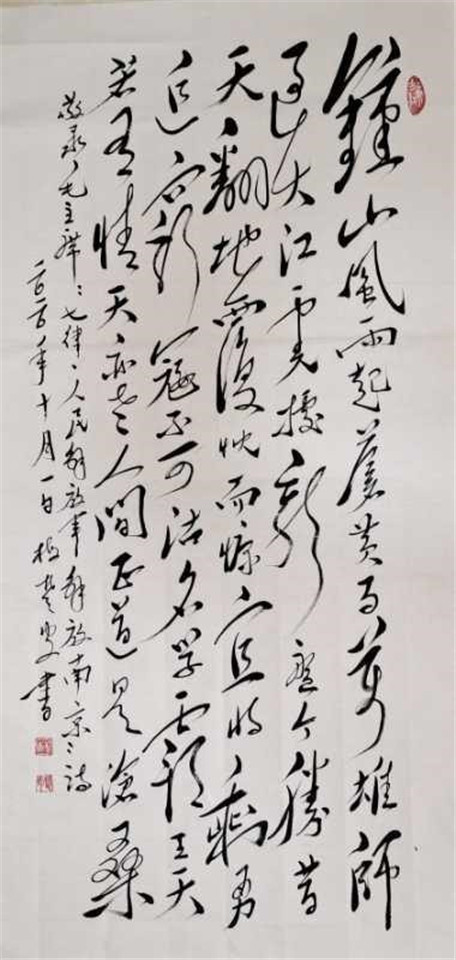 鐘山風雨起蒼黄百萬雄師
過大江虎據龍盤今勝昔
天翻地覆慨而慷宜將剩勇
追窮寇不可沽名學霸王天
若有情天亦老人間正道是滄桑
敬录毛主席七律人民解放军解放南京之诗
二〇二〇年十月一日 叟書